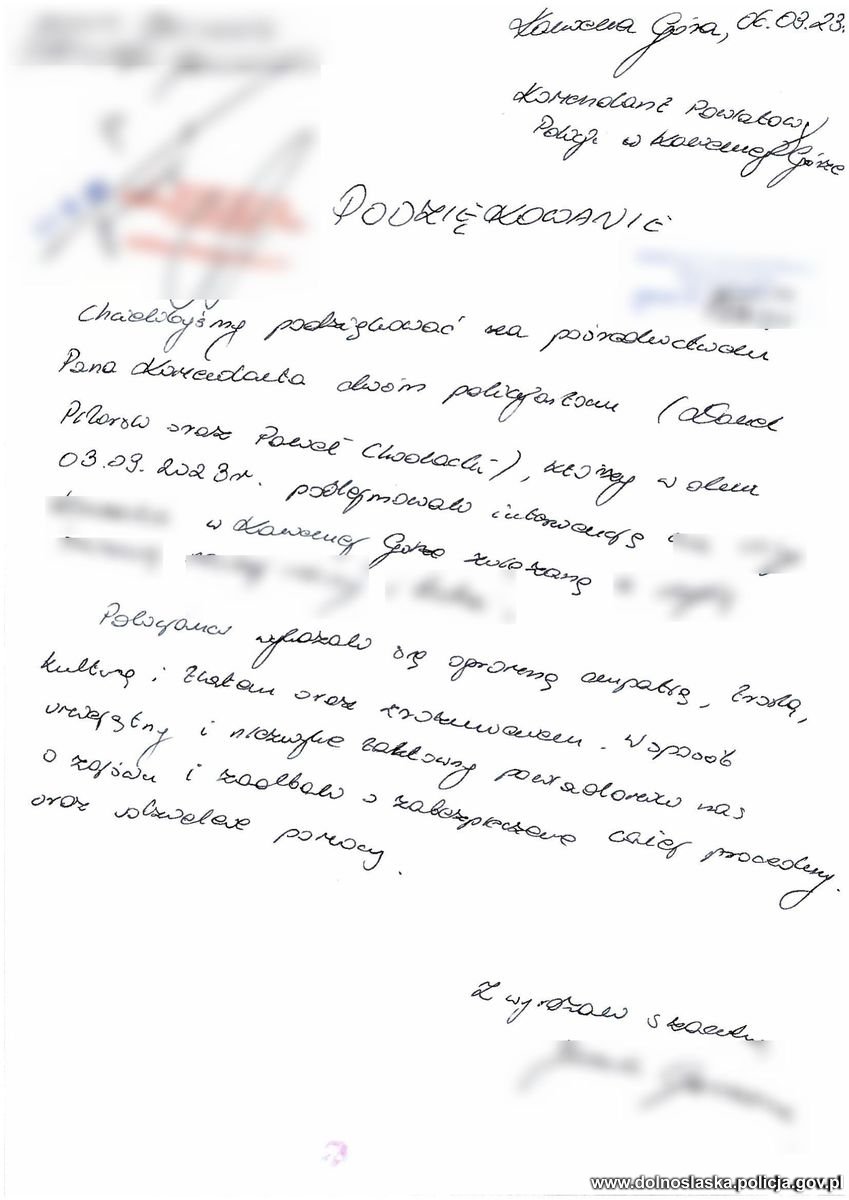 Kamienna Góra, 06.09.23.
Komendant Powiatowy
Policji w Kamiennej Górze
PODZIĘKOWANIE
Chcielibyśmy podziękować za pośrednictwem
Pana Komendanta dwóm policjantom (
oraz Paweł ), którzy w dniu
03.09.2023r. podejmowali interwencję
w Kamiennej Górze związaną
Policjanci wykazali się ogromną empatią, troską,
kulturą i taktem oraz zrozumieniem. W sposób
umiejętny i niezwykle taktowny powiadomili nas
o zajściu i zadbali o zabezpieczenie całej procedury
oraz udzielenie pomocy.
Z wyrazami szacunku
www.dolnoslaska.policja.gov.pl